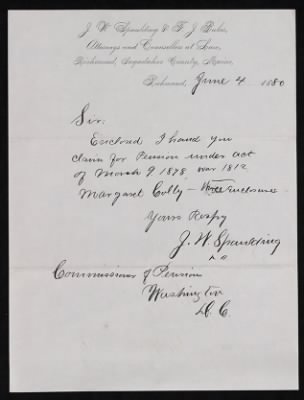 J. W. Spaulding & F. J. Buker,
Attorneys and Counsellors at Law,
Richmond, Sagadahoc County, Maine.
Richmond, June 4 1880
Sir:
Enclosed I hand you
claim for Pension under act
of March 9 1878, war 1812
Margaret Colby – Enclosures
Yours Respy
J. W. Spaulding
Commissioner of Pension
Washington
D. C.